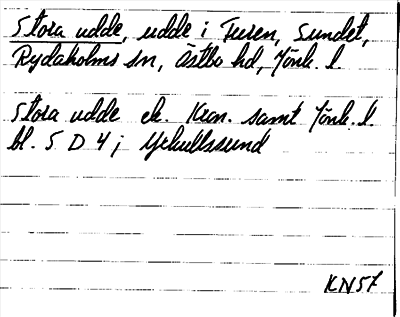 Stora udde, udde i Furen, Sundet,
Rydaholms sn, Östbo hd, Jönk. l.
Stora udde ek. Kron. samt Jönk. l.
bl. 5 D 4 ; Yxkullssund
KN57